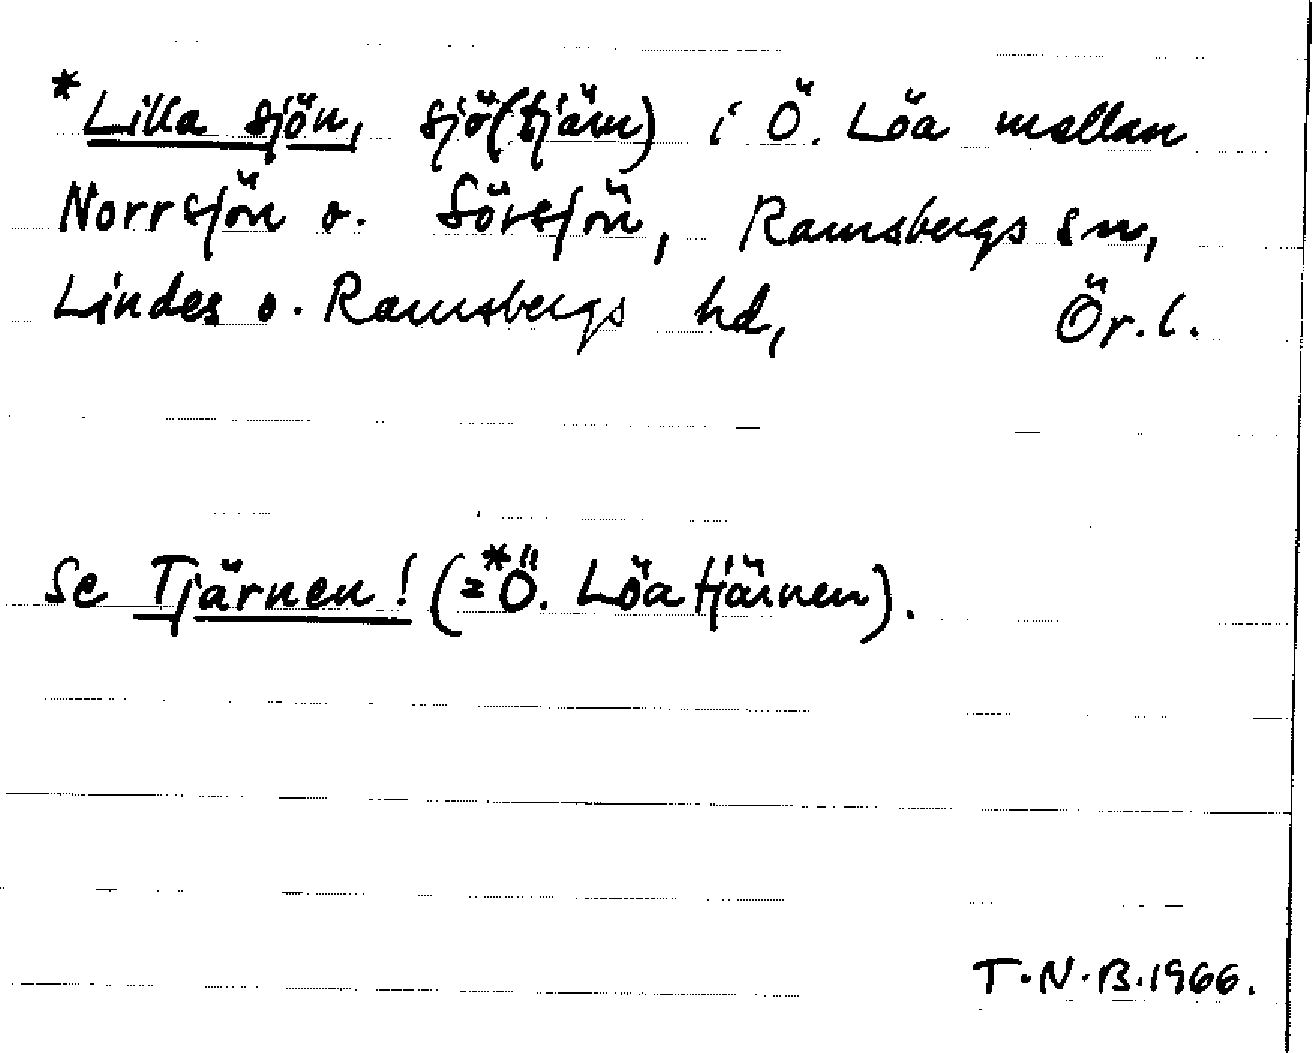 *Lilla sjön, sjö(tjärn) i Ö. Löa mellan
Norrsjön o. Sörsjön, Ramsbergs sn,
Lindes o. Ramsbergs hd, Ör.l.
Se Tjärnen! (=*Ö. Löatjärnen).
T.N.B.1966.